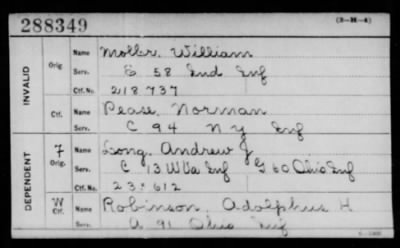 288349
(3-H-4)
INVALID
Orig.
Name Moller, William
Serv. E 58 Ind Inf
Ctf. No. 218737
Ctf.
Name Pease, Norman
Serv. C 94 N Y Inf
DEPENDENT
F
Orig.
Name Long, Andrew J
Serv. C 13 W Va Inf G 60 Ohio Inf
Ctf. No.
W
Ctf.
Name Robinson, Adolphus H
Serv. A 91 Ohio Inf